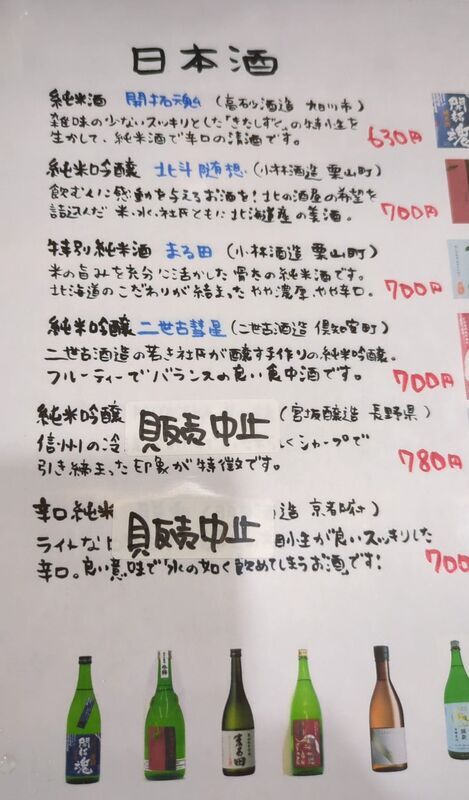 日本酒
純米酒 開拓魂 (高砂酒造 旭川市)
雑味の少ないスッキリとした「きたしずく」の特性を
生かして、純米酒で辛口の清酒です。 630円
純米吟醸 北斗随想 (小林酒造 栗山町)
飲む人に感動を与えるお酒を!北の酒屋の希望を
詰込んだ 米、水、社氏ともに北海道産の美酒。 700円
特別純米酒 まる田 (小林酒造 栗山町)
米の旨みを充分に活かした骨太の純米酒です。
北海道のこだわりが結まったやや濃厚、やや辛口。 700円
純米吟醸 二世古彗星 (二世古酒造 倶知安町)
二世古酒造の若き社氏が醸す手作りの純米吟醸。
フルーティーでバランスの良い食中酒です。 700円
純米吟醸 販売中止 (宮坂醸造 長野県)
信州の冷 くシャープで
引き締まった印象が特徴です。 780円
辛口純米 販売中止 造 京都府)
ライトな が良いスッキリした
辛口。良い意味で「水の如く飲めてしまうお酒」です! 700
開拓魂
まる田